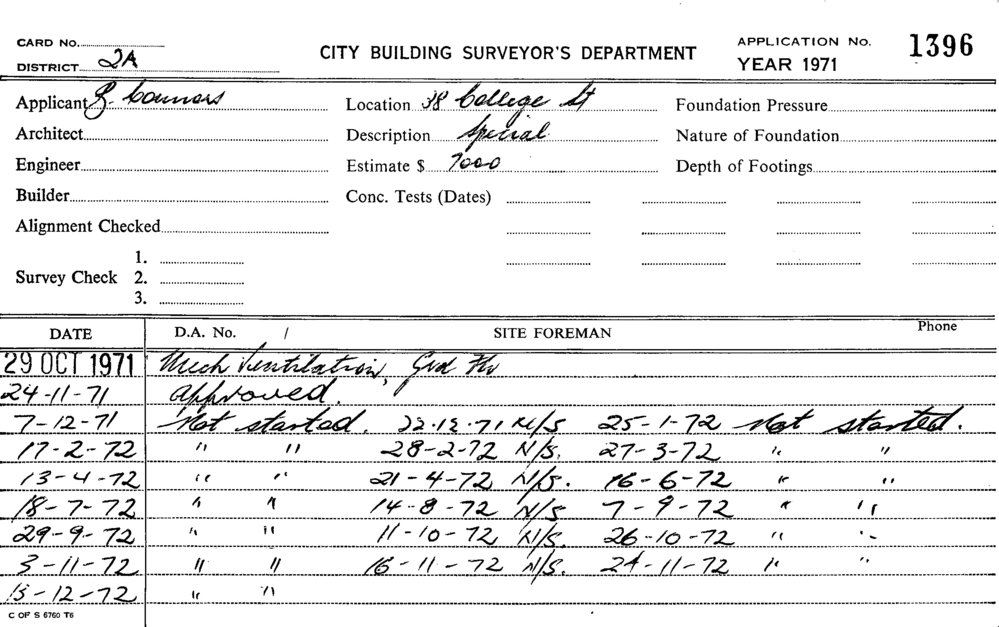 CARD No.
DISTRICT 2A
CITY BUILDING SURVEYOR'S DEPARTMENT
APPLICATION No. 1396
YEAR 1971
Applicant Connors Location 38 College St Foundation Pressure
Architect Description Special Nature of Foundation
Engineer Estimate $ 7000 Depth of Footings
Builder Conc. Tests (Dates)
Alignment Checked
1.
Survey Check 2.
3.
DATE D.A. No. / SITE FOREMAN Phone
29 OCT 1971 Mech Ventilation, Grd Flr
24-11-71 Approved.
7-12-71 Not started. 22.12.71 N/S 25-1-72 Not started.
17-2-72 " " 28-2-72 N/S. 27-3-72 " "
13-4-72 " " 21-4-72 N/S. 16-6-72 " "
18-7-72 " " 14-8-72 N/S 7-9-72 " "
29-9-72 " " 11-10-72 N/S. 26-10-72 " "
3-11-72 " " 16-11-72 N/S. 24-11-72 " "
-12-72 " "
C OF S 6760 T6